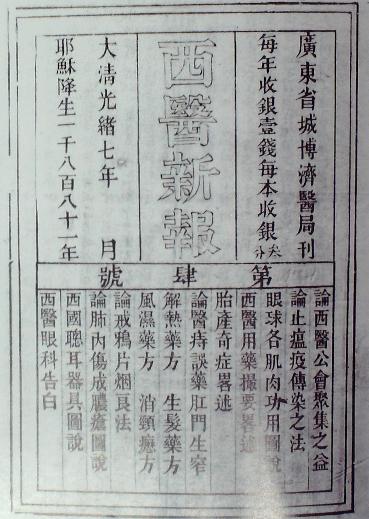 廣東省城博濟醫局刊
每年收銀壹錢每本收銀尖分
西醫新報
大清光緒七年 月
耶穌降生一千八百八十一年
第肆號
論西醫公會聚集之益
論止瘟疫傳染之法
眼球各肌肉功用圖說
西醫用藥撮要畧述
胎產奇症畧述
論醫痔誤藥肛門生窄
解熱藥方 生髮藥方
風濕藥方 消頸癧方
論戒鴉片烟良法
論肺內傷成膿瘡圖說
西國聰耳器具圖說
西醫眼科告白